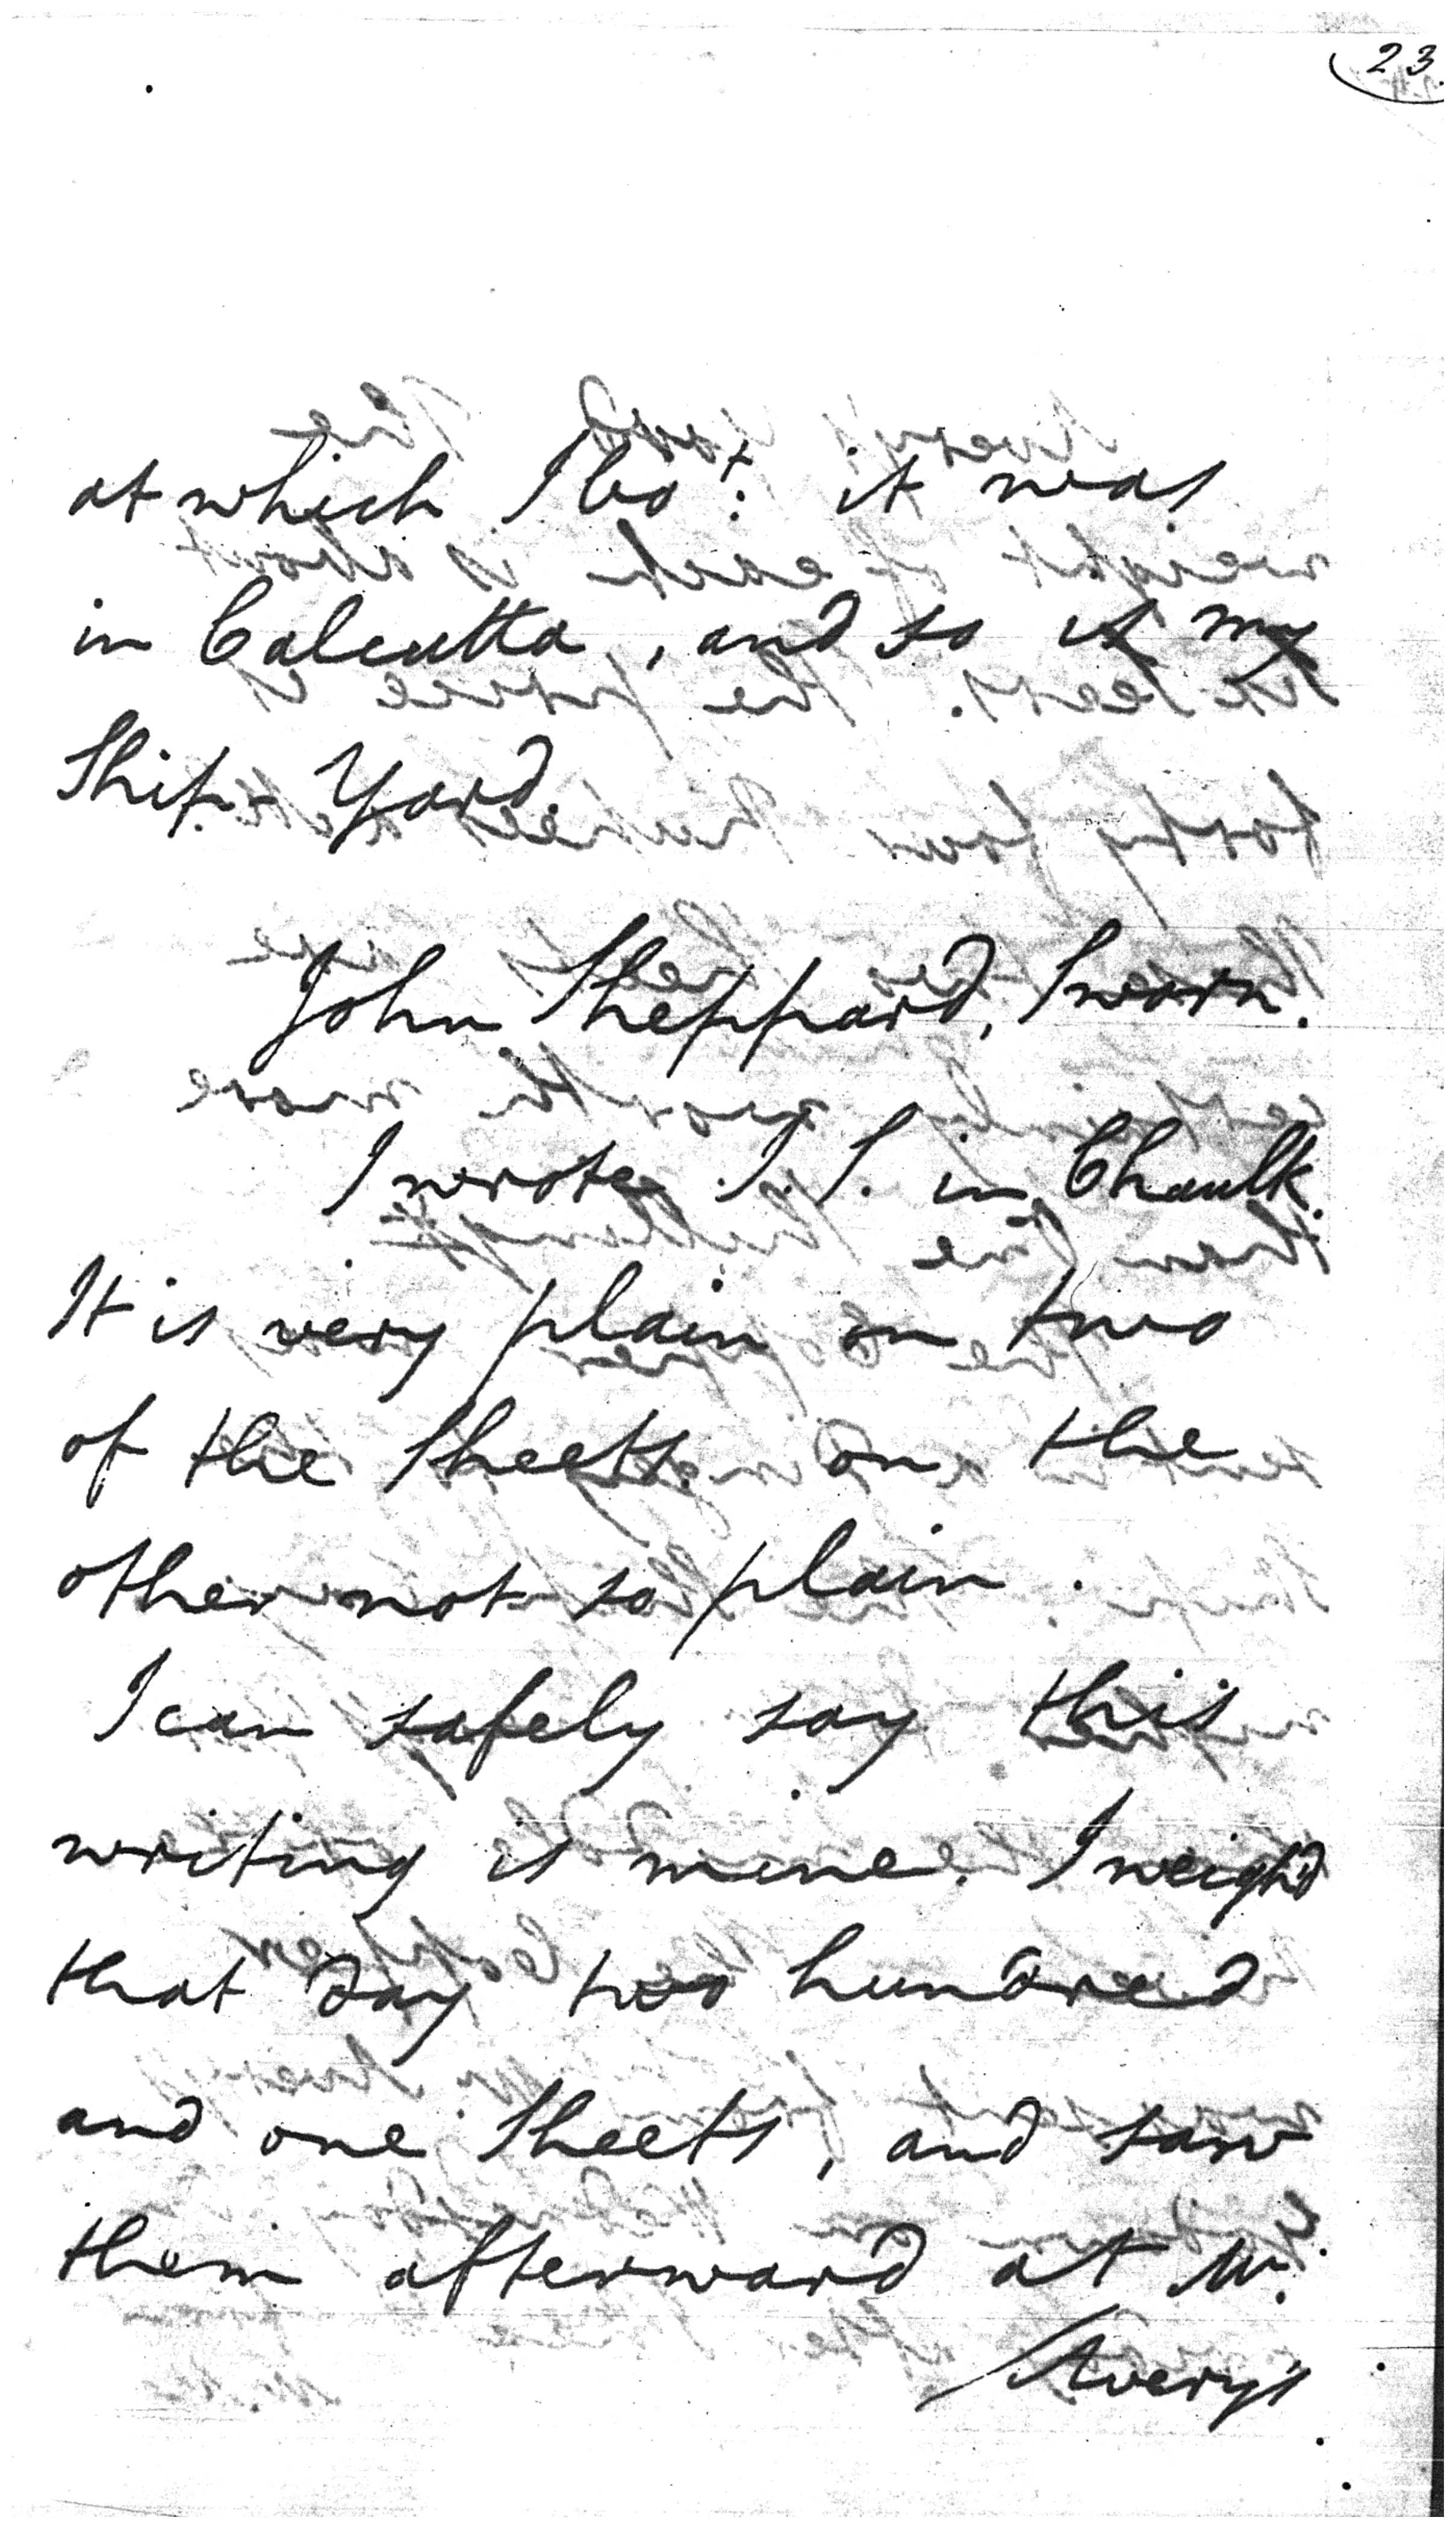 23.
at which I bot: it was
in Calcutta, and so is my
Ship-Yard.
John Sheppard, Sworn.
I wrote I. S. in Chaulk.
It is very plain on two
of the Sheets. on the
other not so plain.
I can safely say this
writing is mine. I weigh'd
that day two hundred
and one Sheets, and saw
them afterward at Mr.
Avery's